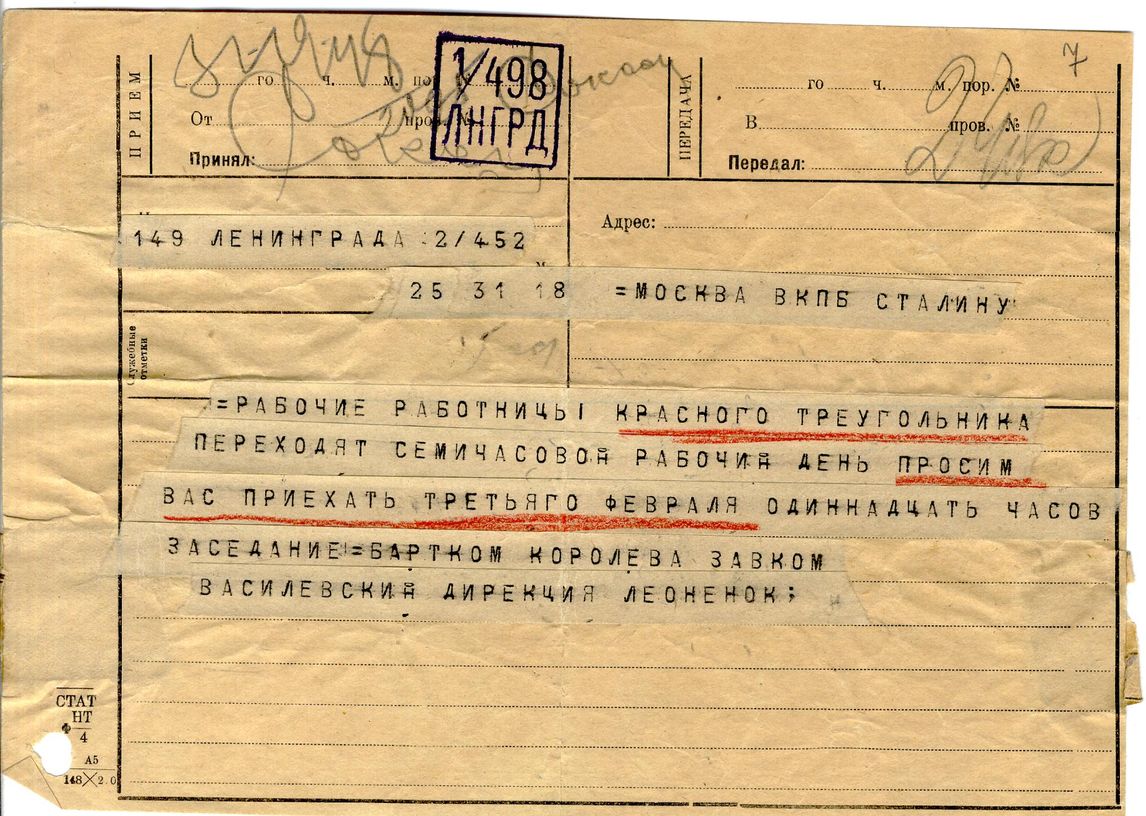 7
ПРИЕМ
го ч. м. по
От про № 
Принял:
1/498
ЛНГРД
ПЕРЕДАЧА
го ч. м. пор. №
В пров. №
Передал:
Адрес:
149 ЛЕНИНГРАДА 2/452
25 31 18 =МОСКВА ВКПБ СТАЛИНУ
Служебные
отметки
=РАБОЧИЕ РАБОТНИЦЫ КРАСНОГО ТРЕУГОЛЬНИКА
ПЕРЕХОДЯТ СЕМИЧАСОВОЙ РАБОЧИЙ ДЕНЬ ПРОСИМ
ВАС ПРИЕХАТЬ ТРЕТЬЯГО ФЕВРАЛЯ ОДИННАДЦАТЬ ЧАСОВ
ЗАСЕДАНИЕ!=БАРТКОМ КОРОЛЕВА ЗАВКОМ
ВАСИЛЕВСКИЙ ДИРЕКЦИЯ ЛЕОНЕНОК;
СТАТ
НТ
Ф 4
А5
148×2.0